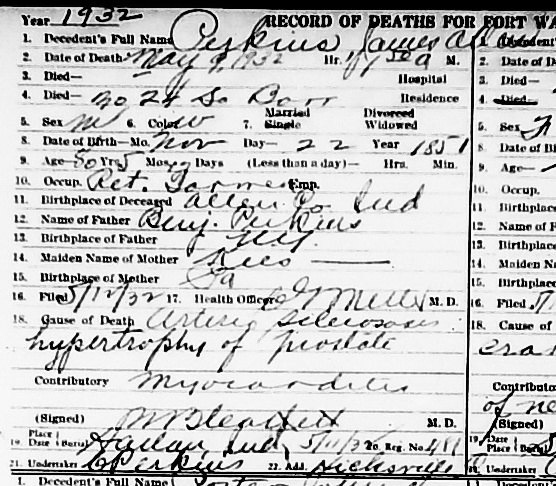 Year 1932 RECORD OF DEATHS FOR FORT WA
1. Decedent's Full Name Perkins, James
2. Date of Death May 9, 1932 Hr. M.
3. Died— Hospital
4. Died— 2024 So Barr Residence
5. Sex M 6. Color W 7. Married Single Divorced Widowed
8. Date of Birth—Mo. Nov Day— 22 Year 1851
9. Age— 80 Yrs. 5 Mos. Days (Less than a day)— Hrs. Min.
10. Occup. Ret. Farmer Emp.
11. Birthplace of Deceased Allen Co. Ind
12. Name of Father Benj. Perkins
13. Birthplace of Father N.Y.
14. Maiden Name of Mother Rees
15. Birthplace of Mother Pa
16. Filed 5/12/32 17. Health Officer M. D.
18. Cause of Death Arterio sclerosis
hypertrophy of prostate
Contributory Myocarditis
(Signed) M. D.
19. Place Date (Burial Harlan, Ind 5/11/32 20. Reg. No. 481
21. Undertaker Perkins 22. Add. Hicksville O
1. Decedent's Full Name
1. Decedent'
2. Date of D
3. Died—
4. Died—
5. Sex
8. Date of Bi
9. Age—
10. Occup.
11. Birthplace
12. Name of F
13. Birthplace
14. Maiden Na
15. Birthplace
16. Filed
18. Cause of
Contributo
of
(Signed)
19. Date Place (B
21. Undertake
1. Decedent